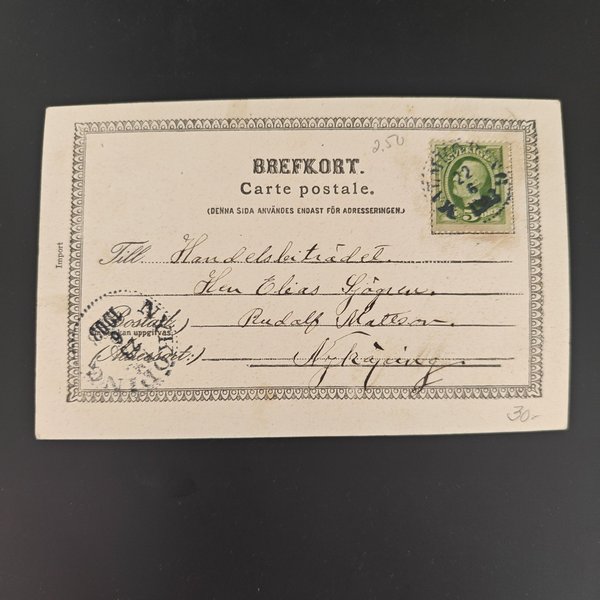 2.50
BREFKORT.
Carte postale.
(DENNA SIDA ANVÄNDES ENDAST FÖR ADRESSERINGEN.)
Import
Till Handelsbiträdet.
Herr Elias Sjögren.
Rudolf Mattson.
Nyköping.
NYKÖPING
22
30-